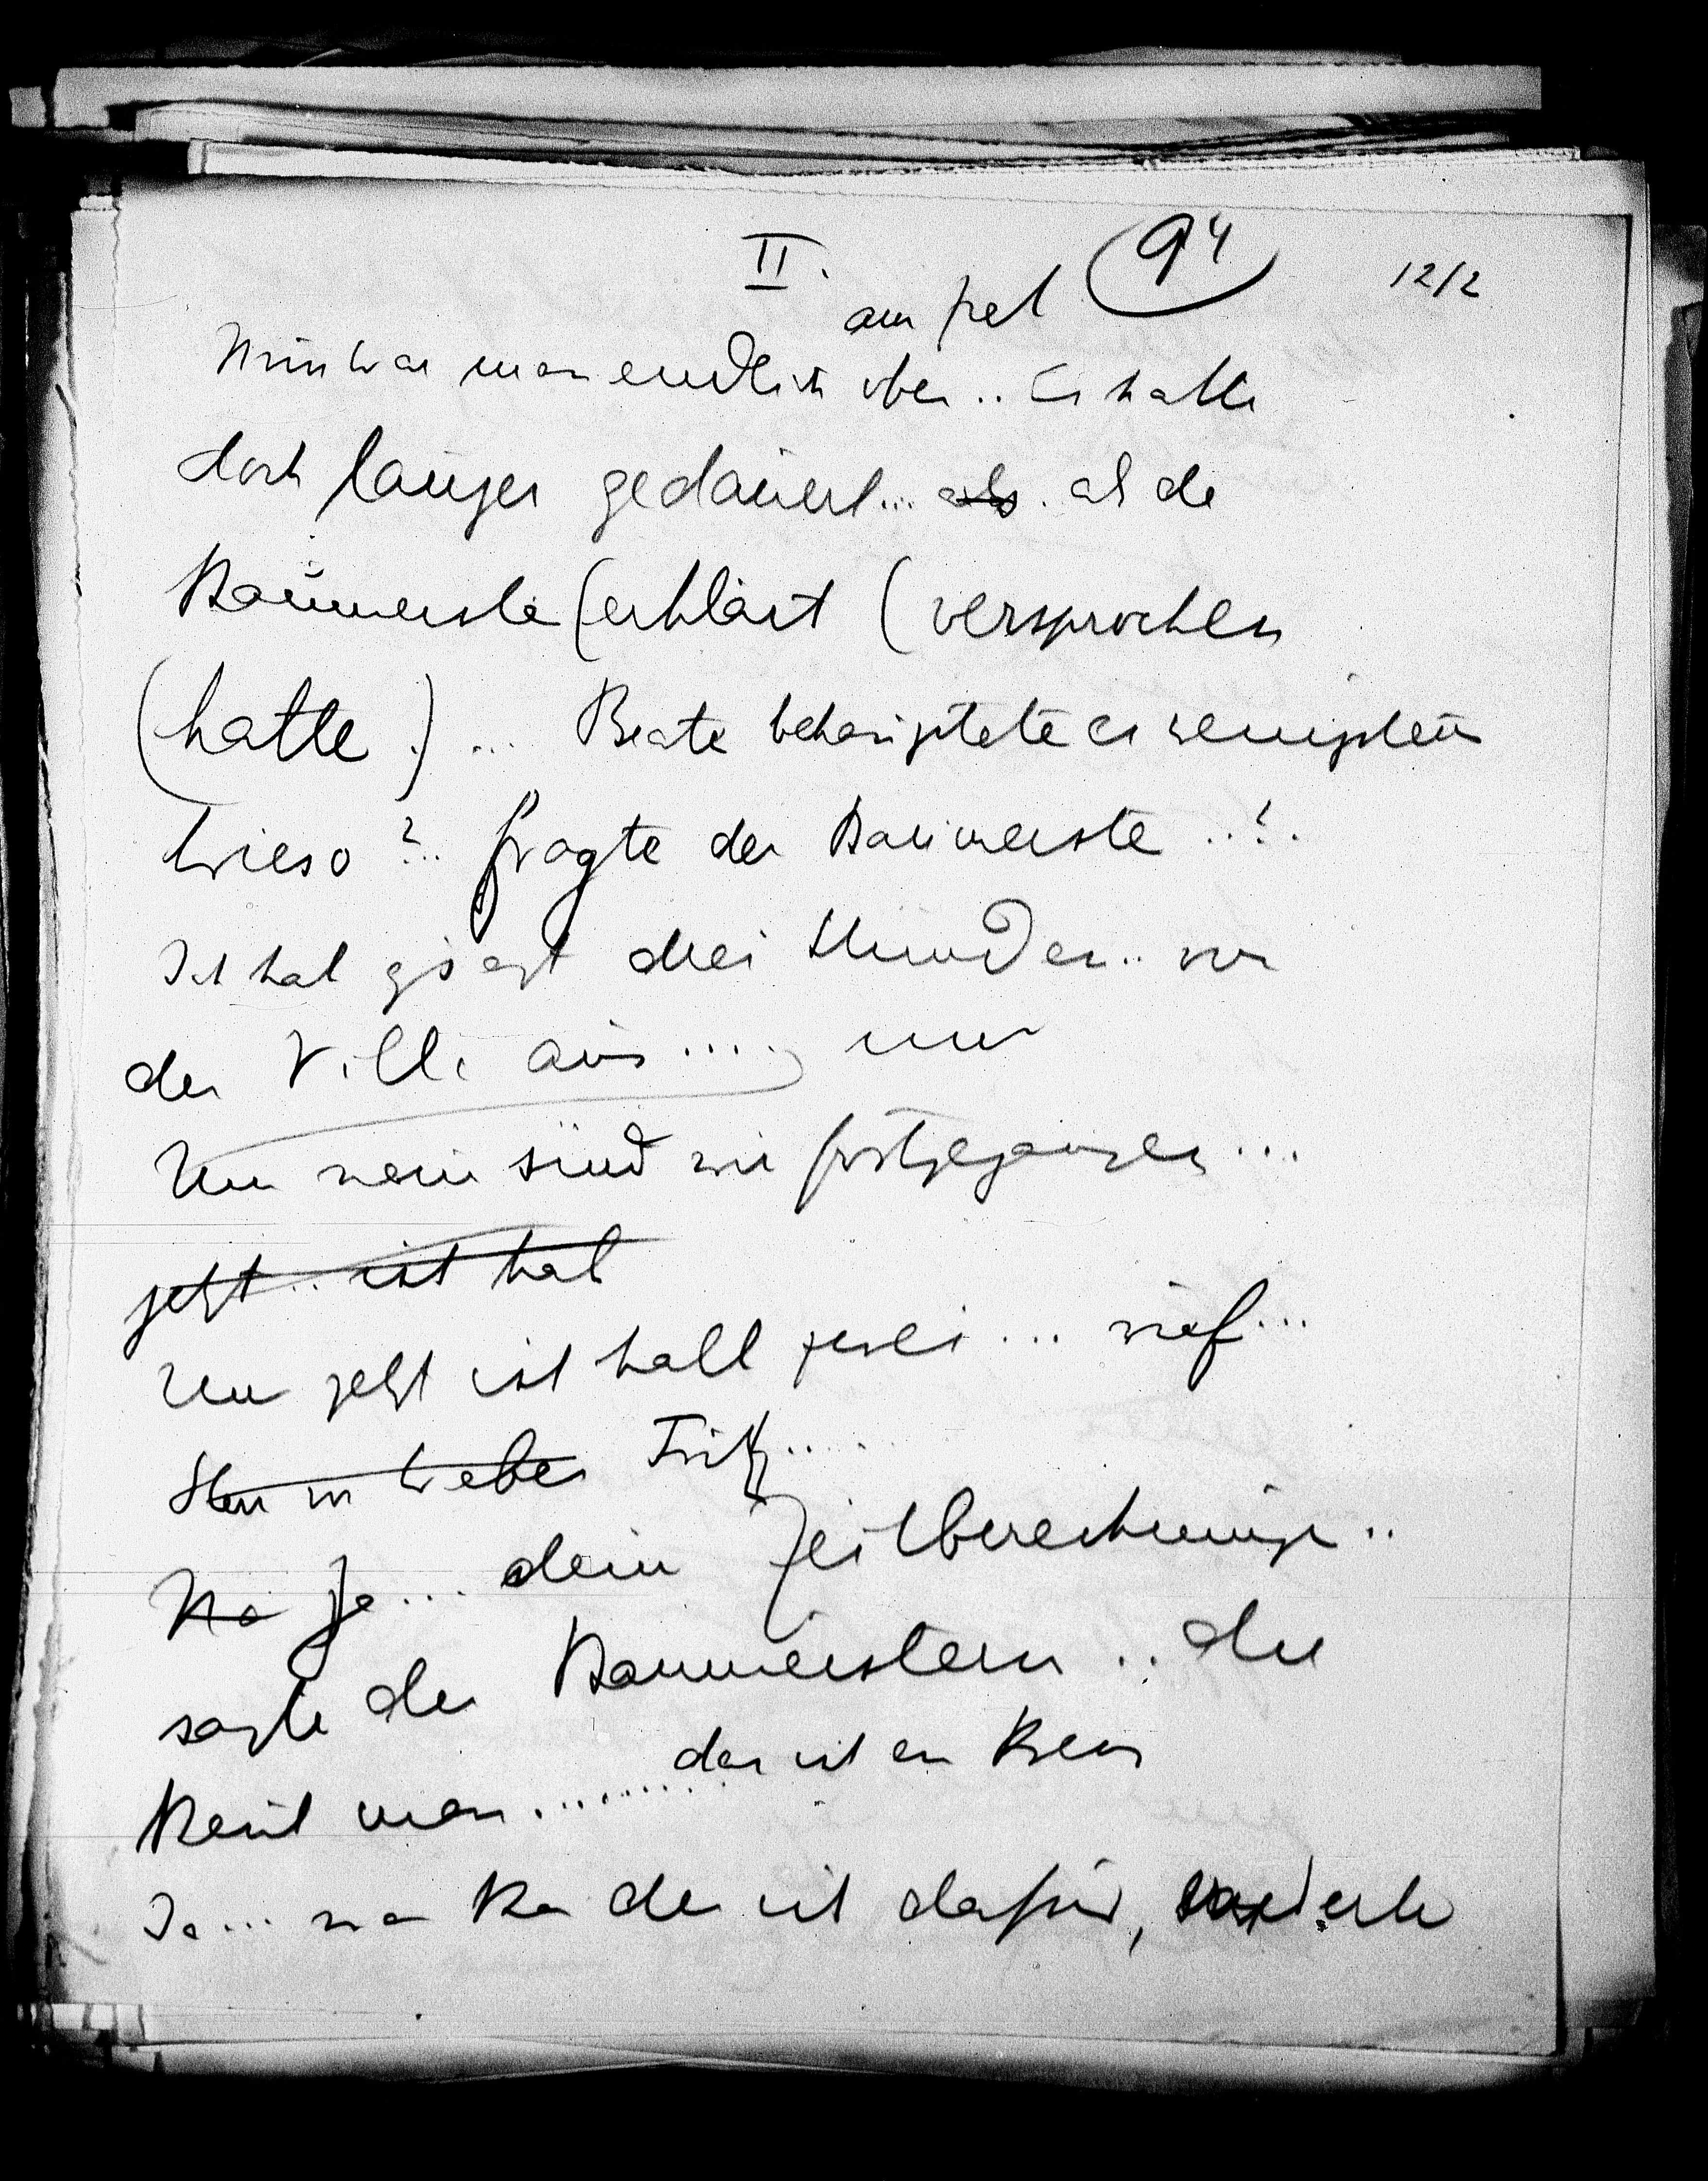 II. 94 12/2
am Ziel
Nun war man endlich oben .. Es hatte
doch länger gedauert ... als . als der
Baumeister (erklärt (versprochen
(hatte .) ... Beate behauptete es wenigstens
Wieso? .. fragte der Baumeister ..?.
Ich hab gesagt drei Stunden .. von
der Villa aus .....
Um neun sind wir fortgegangen ...
jetzt .. ist halb
Um jetzt ist halb zwei ... rief ...
Herr von Weber Fritz .....
Na Ja ... dein Zeitberechnung ..
sagte der Baumeisterin .. die
kennt man .........
das ist ein
Ja ... der ist dafür,